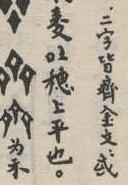 二字皆齊金文、或
麥吐穗上平也。
為禾